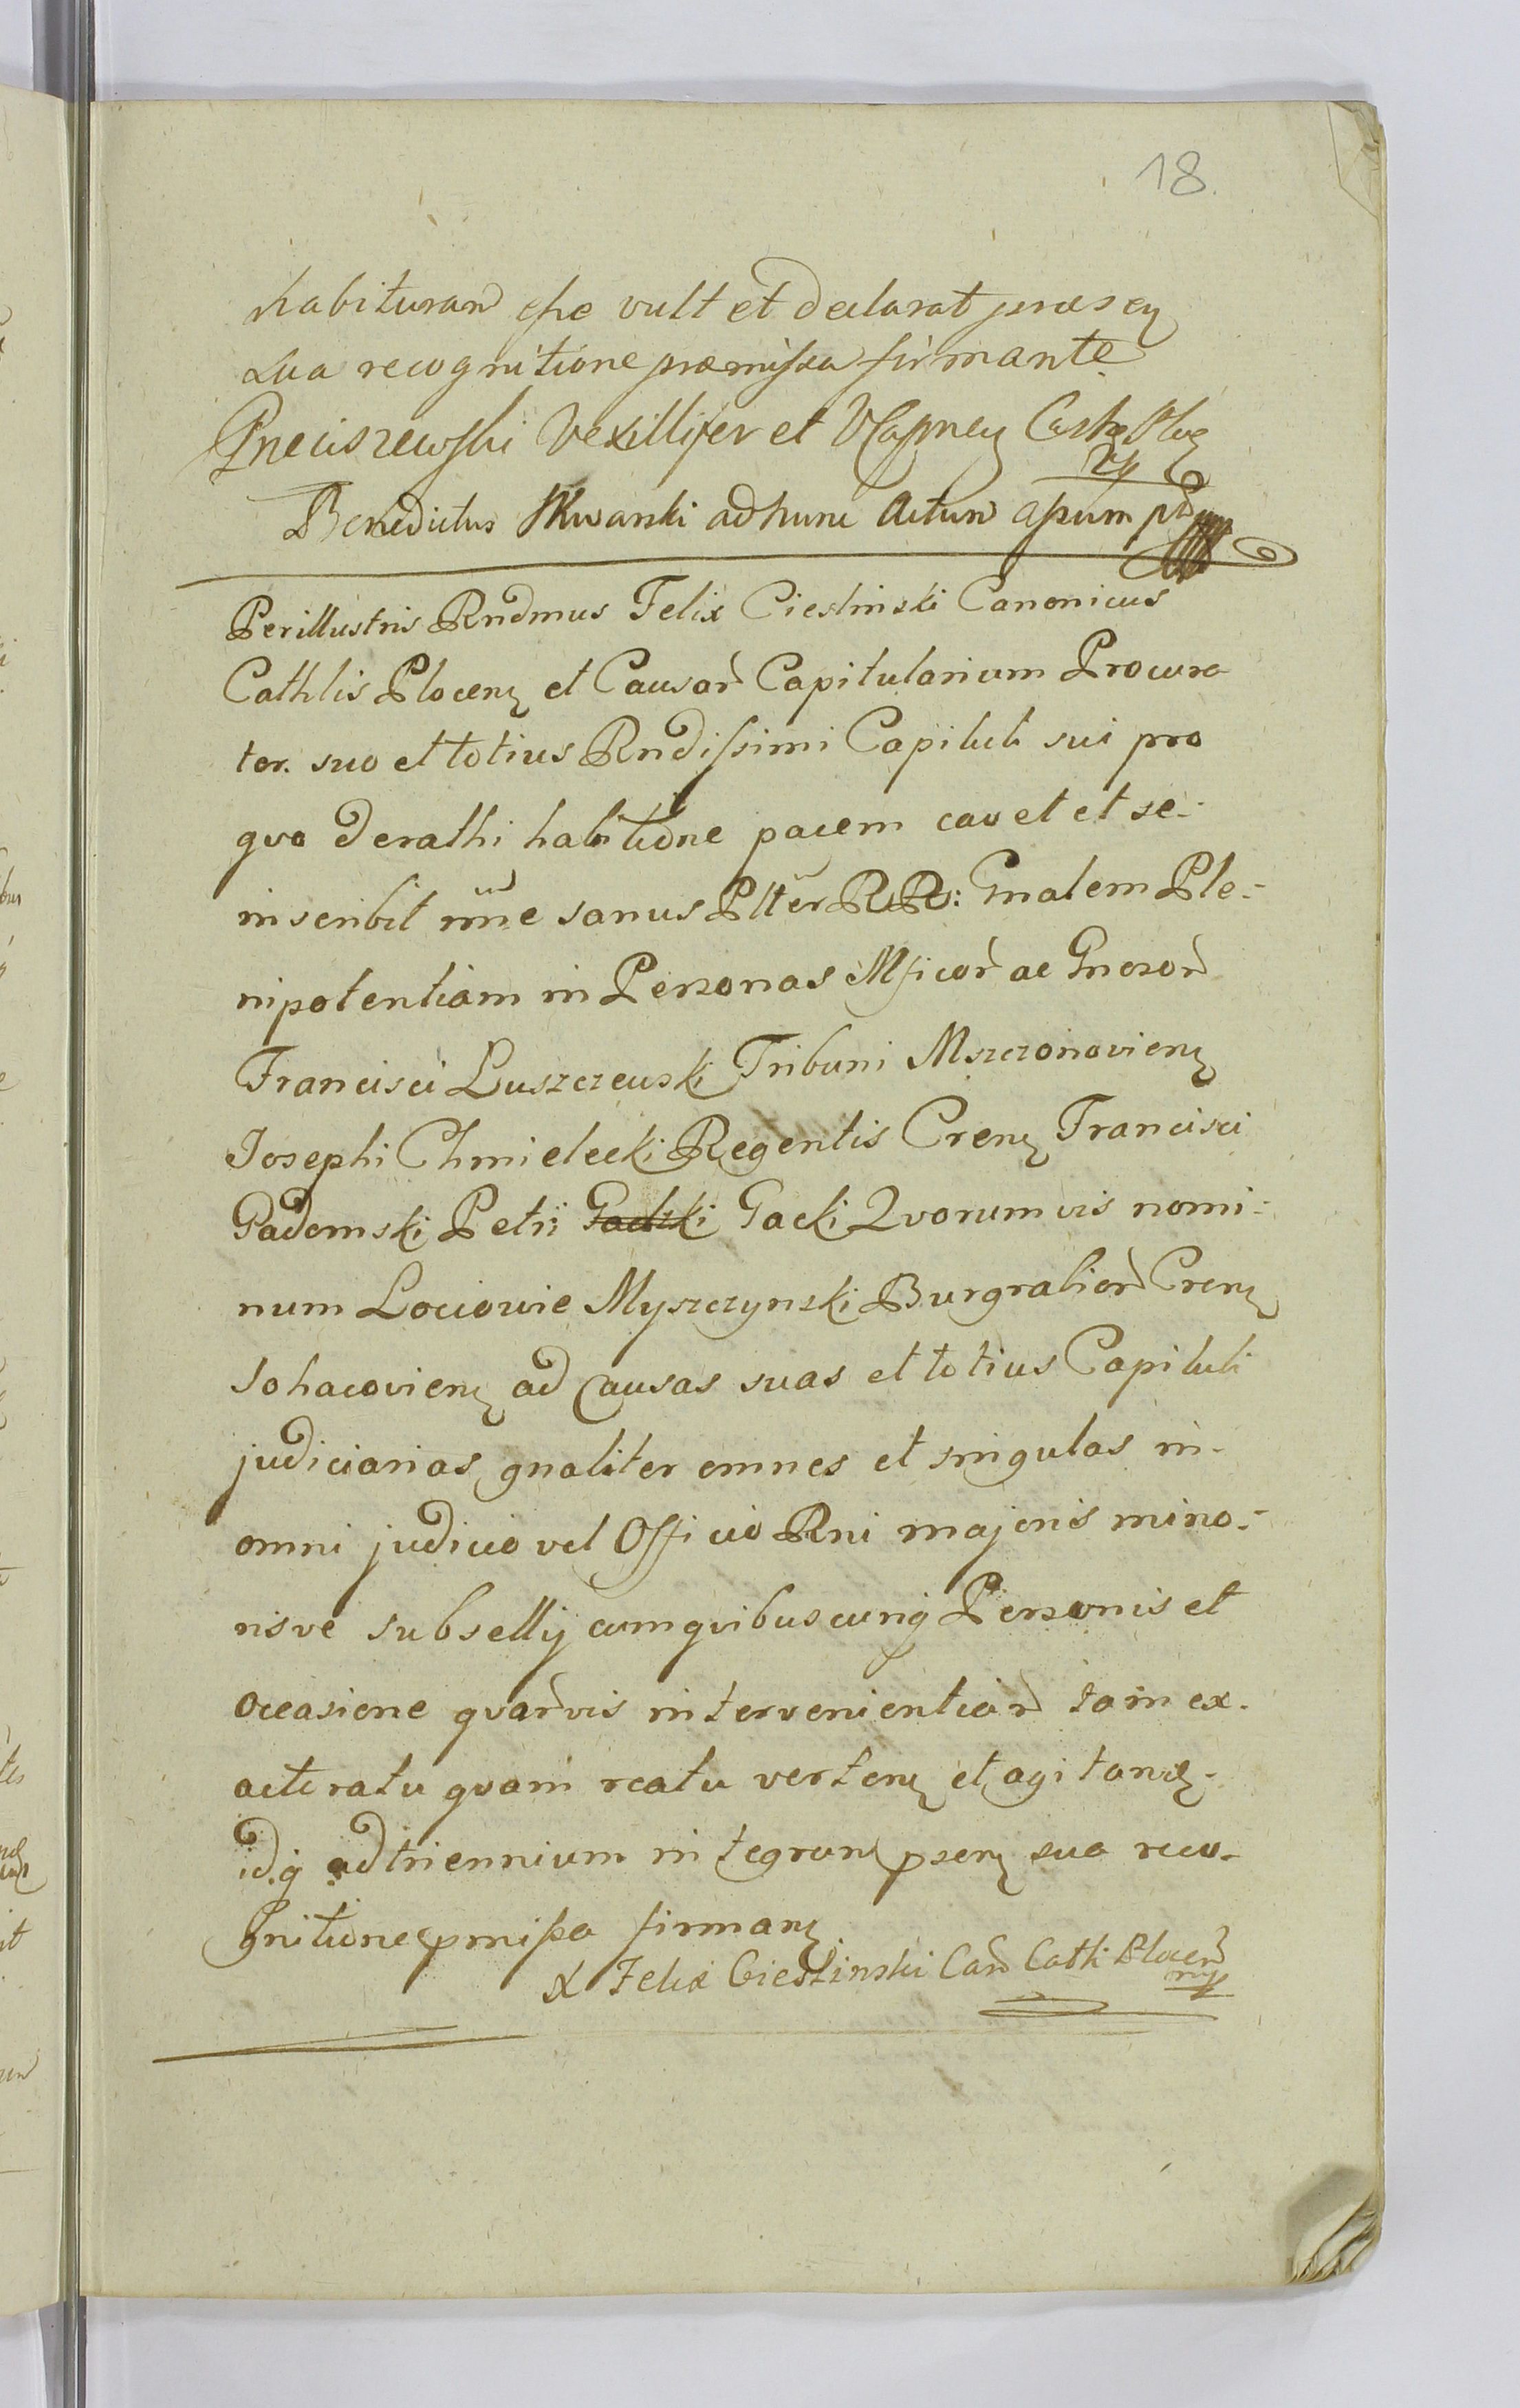 18.
habituram esse vult et declarat praesen
sua recognitione praemissa firmante
Pneciszewski Vexillifer et VCapnen Castr Ploc
mp
Benedictus Skwarski ad hunc Actum assum
Perillustris Rndmus Felix Ciesliński Canonicus
Cathlis Plocen et Causar Capitularium Procura
tor. suo et totius Rndissimi Capituli sui pro
qvo de rathi habitione pacem cavet et se-
inscribit nne sanus Ptter RR: Gnalem Ple-
nipotentiam in Personas Mficor ac Gnosor
Francisci Luszczewski Tribuni Mszczonovien
Josephi Chmielecki Regentis Cren Francisci
Gadomski Petri Gadzki Gacki Qvorumvis nomi-
num Łociowie Myszczynski Burgrabior Cren
Sohacovien ad causas suas et totius Capituli
judiciarias gnaliter omnes et singulas in-
omni judicio vel Officio Rni majoris mino-
risve subsellij cum qvibuscunq Personis et
occasione qvarvis intervenientiar tam ex-
actoratu qvam reatu verten et agitand-
idq ad triennium integrum psen sua reco-
gnitione pmissa firman
X Felix Ciesliński Can Cath Plocen
mp